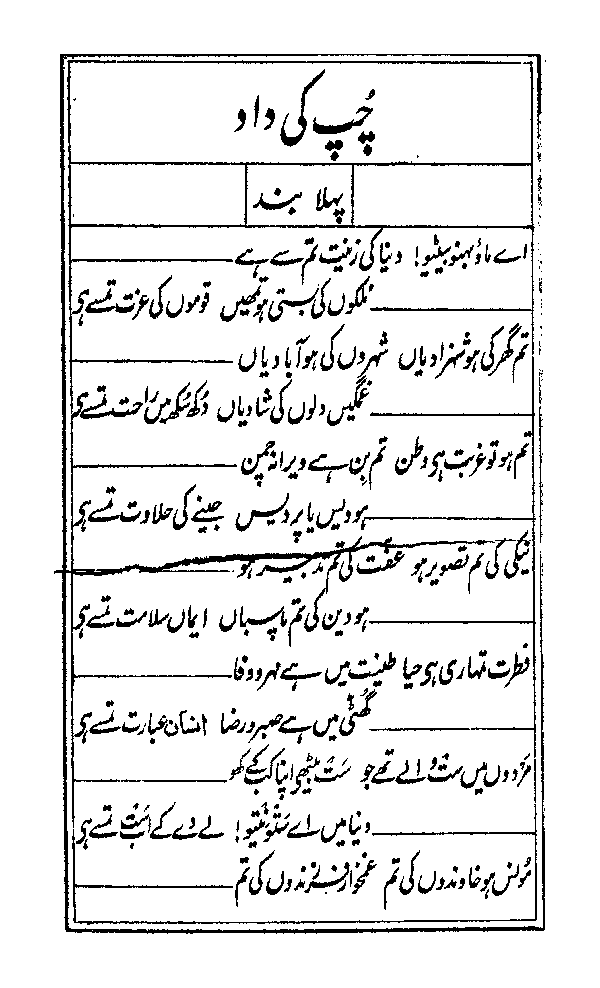 چُپ کی داد
پہلا بند
اے ماؤ بہنو بیٹیو! دنیا کی زینت تم سے ہے
ملکوں کی بستی ہو تمھیں قوموں کی عزت تمسے ہی
تم گھر کی ہو شہزادیاں شہروں کی ہو آبادیاں
غمگیں دلوں کی شادیاں دُکھ سُکھ میں راحت تمسے ہی
تم ہو تو غربت ہی وطن تم بِن ہے ویرانہ چمن
ہو دیس یا پردیس جینے کی حلاوت تمسے ہی
نیکی کی تم تصویر ہو عفت کی تم تدبیر ہو
ہو دین کی تم پاسباں ایماں سلامت تمسے ہی
فطرت تمہاری ہی حیا طینت میں ہے مہر و وفا
گھٹی میں ہے صبر و رضا انسان عبارت تمسے ہی
مردوں میں ست والے تھے جو ست بیٹھے اپنا کب کے کھو
دنیا میں اے ستونتیو! لے دے کے اب ست تمسے ہی
مُونس ہو خاوندوں کی تم غمخوار فرزندوں کی تم